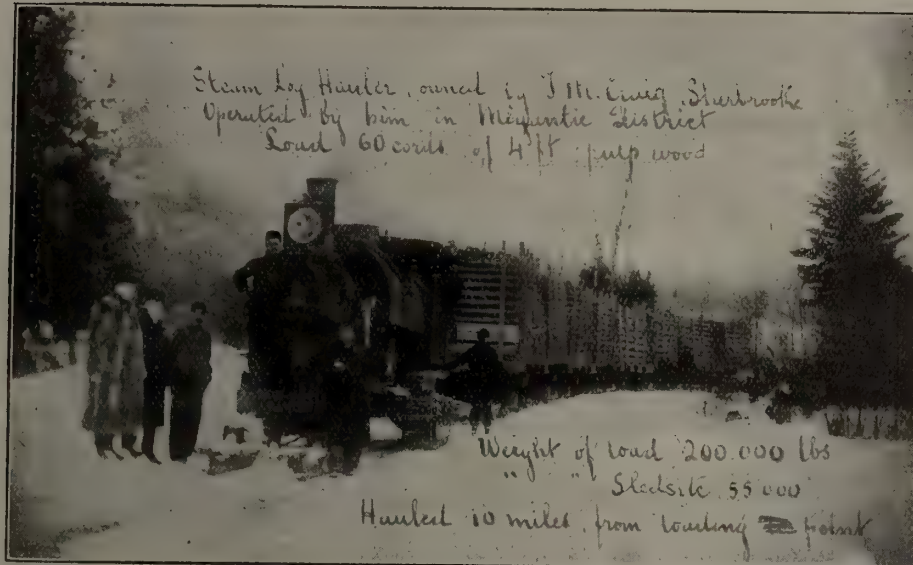 Steam Log Hauler, owned by J M. Craig, Sherbrooke
Operated by him in Megantic District
Load 60 cords of 4 ft pulp wood
Weight of load 200.000 lbs
" " 55 000
Hauled 10 miles from loading point